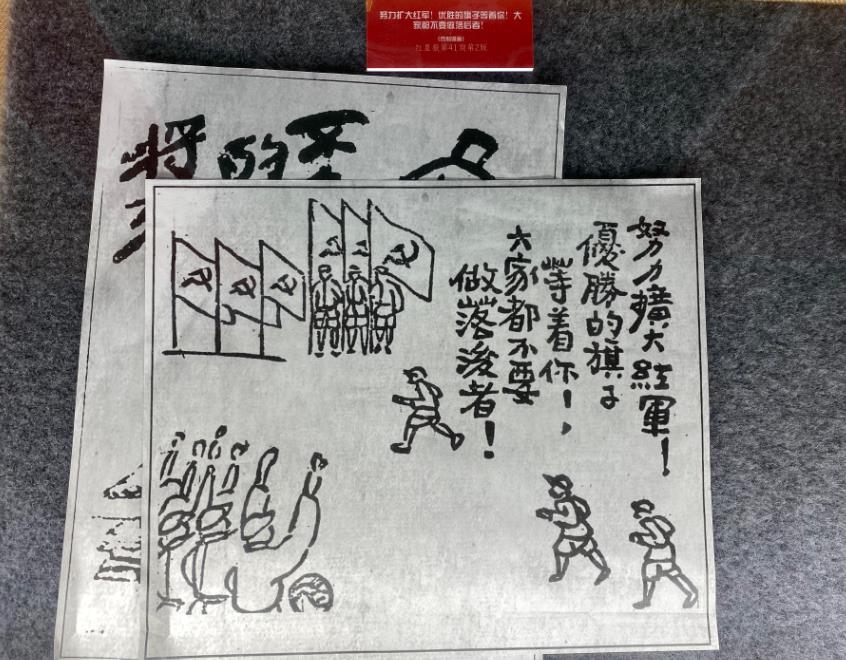 努力扩大红军！优胜的旗子等着你！大
家都不要做落后者！
红星报第41期第2版
努力擴大紅軍！
優勝的旗子
等着你！，
大家都不要
做落後者！
將
的